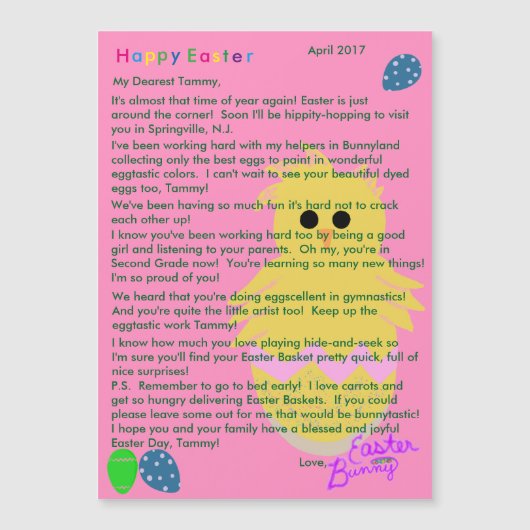 Happy Easter
April 2017
My Dearest Tammy,
It's almost that time of year again! Easter is just
around the corner!  Soon I'll be hippity-hopping to visit
you in Springville, N.J.
I've been working hard with my helpers in Bunnyland
collecting only the best eggs to paint in wonderful
eggtastic colors.  I can't wait to see your beautiful dyed
eggs too, Tammy!
We've been having so much fun it's hard not to crack
each other up!
I know you've been working hard too by being a good
girl and listening to your parents.  Oh my, you're in
Second Grade now!  You're learning so many new things!
I'm so proud of you!
We heard that you're doing eggscellent in gymnastics!
And you're quite the little artist too!  Keep up the
eggtastic work Tammy!
I know how much you love playing hide-and-seek so
I'm sure you'll find your Easter Basket pretty quick, full of
nice surprises!
P.S.  Remember to go to bed early!  I love carrots and
get so hungry delivering Easter Baskets.  If you could
please leave some out for me that would be bunnytastic!
I hope you and your family have a blessed and joyful
Easter Day, Tammy!
Love,
Easter
Bunny